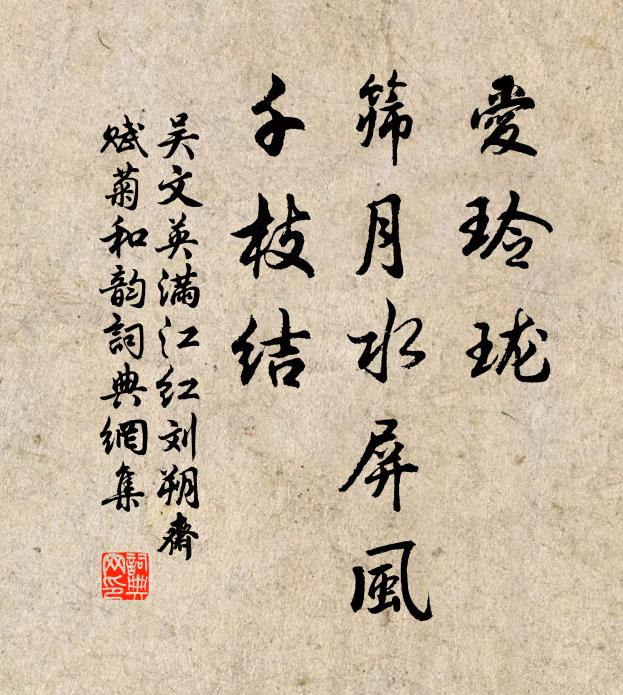 愛玲珑
筛月水屏風
千枝结
吴文英满江红刘朔斋
赋菊和韵詞典網集
詞典
网印